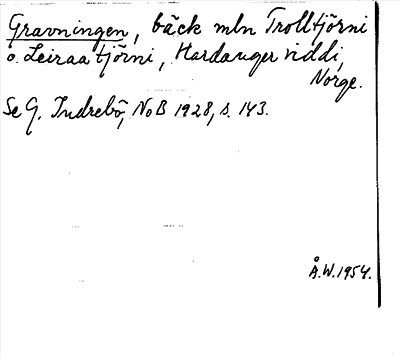 Gravningen, bäck mln Trolltjörni
o. Leiraa tjörni, Hardanger viddi,
Norge.
Se G. Indrebö, NoB 1928, s. 143.
Å.W. 1954.